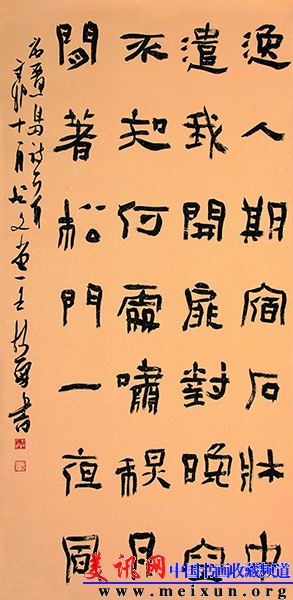 逸人期宿石牀中
遣我開扉對晚空
不知何處嘯秋月
閒著松門一夜風
右賈島詩一首
辛卯十月於文 書
美讯网 中国书画收藏频道
www.meixun.org